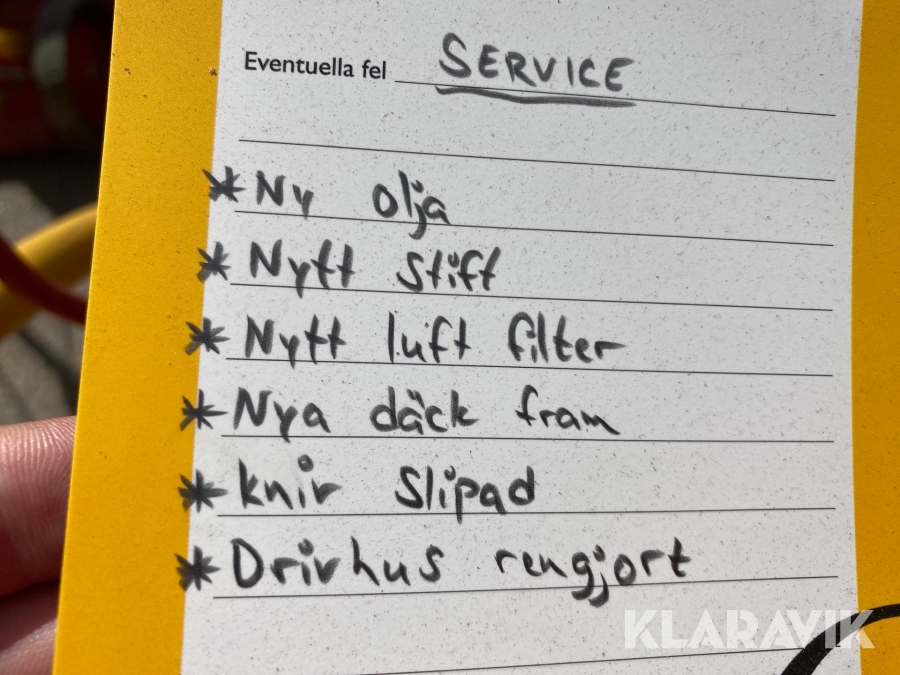 Eventuella fel SERVICE
*Ny olja
*Nytt stift
*Nytt luft filter
*Nya däck fram
*kniv Slipad
*Drivhus rengjort
KLARAVIK